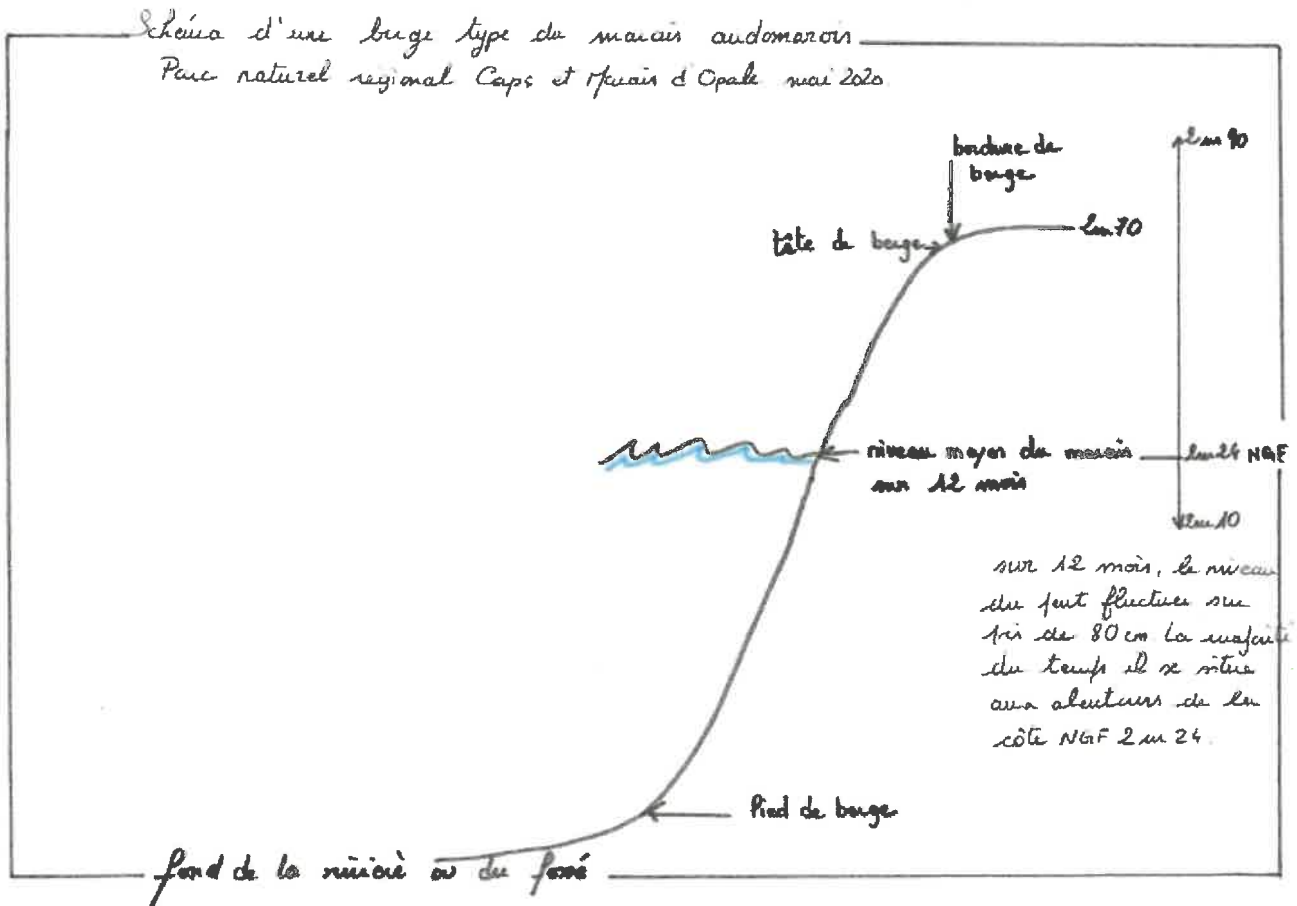 Schéma d'une berge type du marais audomarois
Parc naturel regional Caps et Marais d'Opale mai 2020
bordure de
berge
2m 90
tête de berge
2m70
niveau moyen du marais
sur 12 mois
2m24 NGF
2m10
sur 12 mois, le niveau
du peut fluctuer sur
près de 80 cm La majorité
du temps il se situe
aux alentours de la
côte NGF 2m 24.
Pied de berge
fond de la rivière ou du fossé